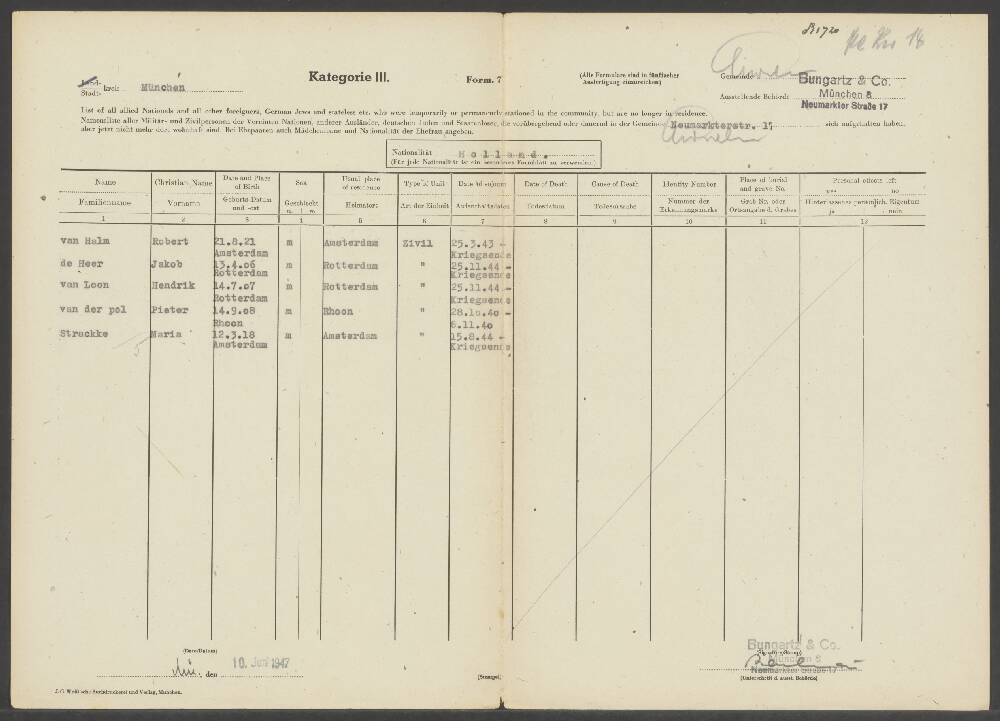 Kategorie III.
Form. 7
(Alle Formulare sind in fünffacher
Ausfertigung einzureichen)
Gemeinde
Bungartz & Co.
München 8
Neumarkter Straße 17
Ausstellende Behörde
Land-
Stadt-
kreis München
List of all allied Nationals and all other foreigners, German Jews and stateless etc. who were temporarily or permanently stationed in the community, but are no longer in residence.
Namensliste aller Militär- und Zivilpersonen der Vereinten Nationen, anderer Ausländer, deutschen Juden und Staatenlosen, die vorübergehend oder dauernd in der Gemeinde Neumarkterstr. 17 sich aufgehalten haben,
aber jetzt nicht mehr dort wohnhaft sind. Bei Ehepaaren auch Mädchenname und Nationalität der Ehefrau angeben.
Nationalität Holland.
(Für jede Nationalität ist ein besonderes Formblatt zu verwenden.)
Name Christian Name Date and Place of Birth Sex Usual place of residence Type of Unit Date of sojourn Date of Death Cause of Death Identity Number Place of burial and grave No. Personal effects left yes no
Familienname Vorname Geburts-Datum und -ort Geschlecht m. w. Heimatort Art der Einheit Aufenthaltsdaten Todesdatum Todesursache Nummer der Erkennungsmarke Grab No. oder Ortsangabe d. Grabes Hinterlassenes persönlich. Eigentum ja nein
1 2 3 4 5 6 7 8 9 10 11 12
van Halm Robert 21.8.21 m Amsterdam Zivil 25.3.43 -
Amsterdam Kriegsende
de Heer Jakob 13.4.06 m Rotterdam " 25.11.44 -
Rotterdam Kriegsende
van Loon Hendrik 14.7.07 m Rotterdam " 25.11.44 -
Rotterdam Kriegsende
van der pol Pieter 14.9.08 m Rhoon " 28.10.40 -
Rhoon 6.11.40
Strackke Maria 12.3.18 m Amsterdam " 15.8.44 -
Amsterdam Kriegsende
5
(Date/Datum)
Mü. den 10. Juni 1947
(Stempel)
Bungartz & Co.
München 8
Neumarkter Straße 17
(Unterschrift d. ausst. Behörde)